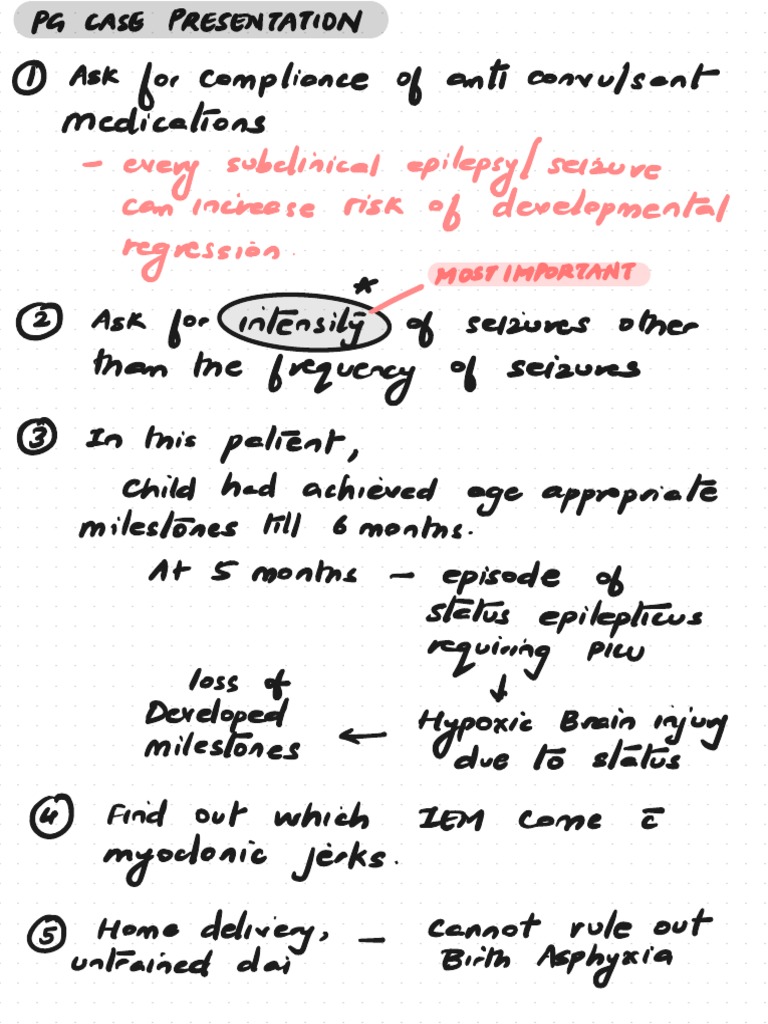 PG CASE PRESENTATION
① Ask for compliance of anti convulsant
medications
- every subclinical epilepsy/seizure
can increase risk of developmental
regression.
MOST IMPORTANT
*
② Ask for intensity of seizures other
than the frequency of seizures
③ In this patient,
Child had achieved age appropriate
milestones till 6 months.
At 5 months - episode of
status epilepticus
requiring PICU
↓
Hypoxic Brain injury
due to status
←
loss of
Developed
milestones
④ Find out which IEM come c̄
myoclonic jerks.
⑤ Home delivery, - Cannot rule out
untrained dai Birth Asphyxia